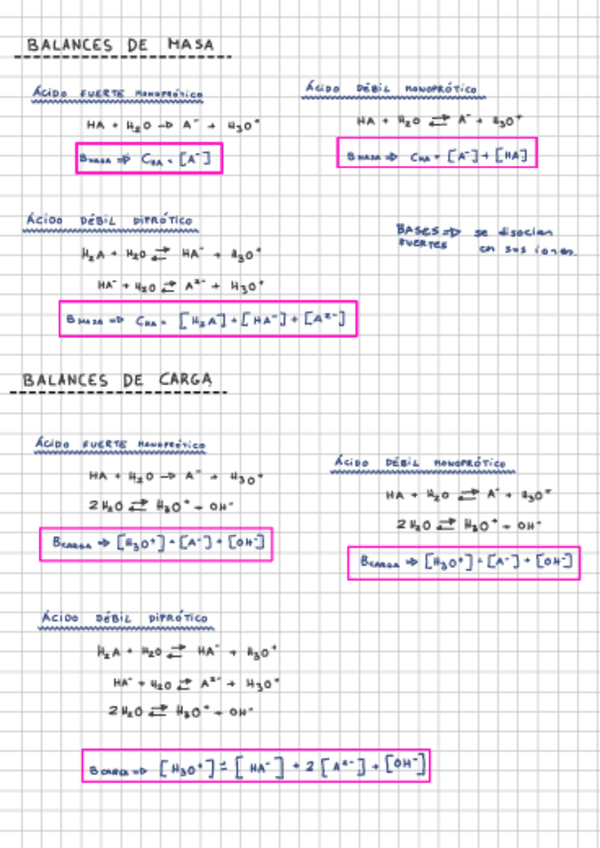 BALANCES DE MASA
ÁCIDO FUERTE MONOPRÓTICO
HA + H₂O → A⁻ + H₃O⁺
BMASA ⇒ CHA = [A⁻]
ÁCIDO DÉBIL MONOPRÓTICO
HA + H₂O ⇄ A⁻ + H₃O⁺
BMASA ⇒ CHA = [A⁻] + [HA]
ÁCIDO DÉBIL DIPRÓTICO
H₂A + H₂O ⇄ HA⁻ + H₃O⁺
HA⁻ + H₂O ⇄ A²⁻ + H₃O⁺
BMASA ⇒ CHA = [H₂A] + [HA⁻] + [A²⁻]
BASES ⇒ se disocian
FUERTES en sus iones.
BALANCES DE CARGA
ÁCIDO FUERTE MONOPRÓTICO
HA + H₂O → A⁻ + H₃O⁺
2H₂O ⇄ H₃O⁺ + OH⁻
BCARGA ⇒ [H₃O⁺] = [A⁻] + [OH⁻]
ÁCIDO DÉBIL MONOPRÓTICO
HA + H₂O ⇄ A⁻ + H₃O⁺
2H₂O ⇄ H₃O⁺ + OH⁻
BCARGA ⇒ [H₃O⁺] = [A⁻] + [OH⁻]
ÁCIDO DÉBIL DIPRÓTICO
H₂A + H₂O ⇄ HA⁻ + H₃O⁺
HA⁻ + H₂O ⇄ A²⁻ + H₃O⁺
2H₂O ⇄ H₃O⁺ + OH⁻
BCARGA ⇒ [H₃O⁺] = [HA⁻] + 2[A²⁻] + [OH⁻]